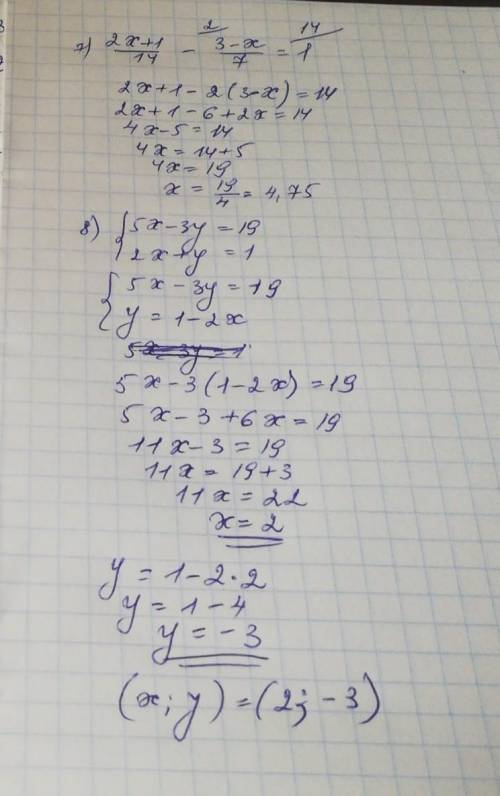 7) (2x+1)/14 - 2/ (3-x)/7 = 14/ 1
2x+1-2(3-x)=14
2x+1-6+2x=14
4x-5=14
4x=14+5
4x=19
x=19/4=4,75
8) { 5x-3y=19
2x+y=1
{ 5x-3y=19
y=1-2x
5x-3y=1
5x-3(1-2x)=19
5x-3+6x=19
11x-3=19
11x=19+3
11x=22
x=2
y=1-2·2
y=1-4
y=-3
(x;y)=(2;-3)